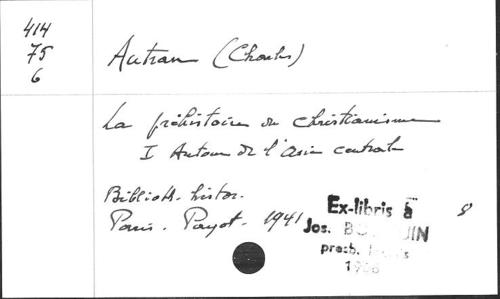 414
75
6
Autran (Charles)
La préhistoire du christianisme
I Autour de l'Asie centrale
Biblioth. histor.
Paris. Payot. 1941
8
Ex-libris à
Jos.
presb.